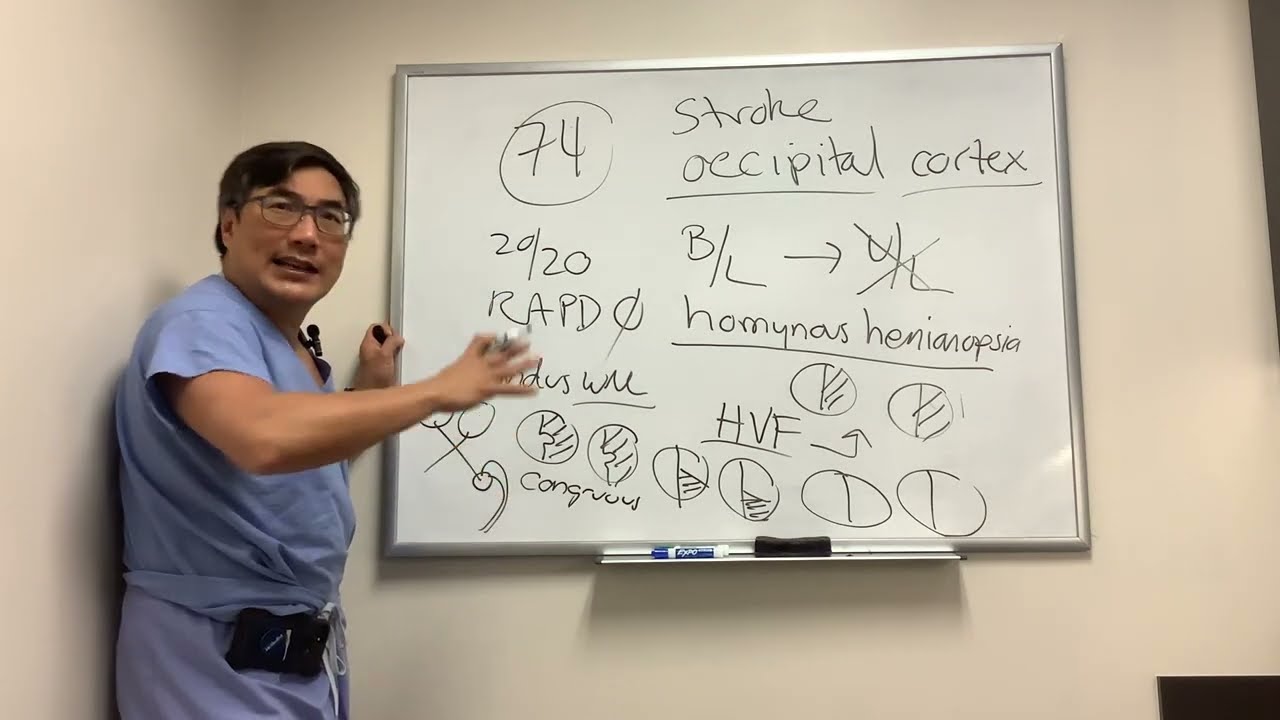 74
Stroke
occipital cortex
20/20
B/L → U/L
RAPD Ø
homynous hemianopsia
WNL
HVF
congruous
EXPO